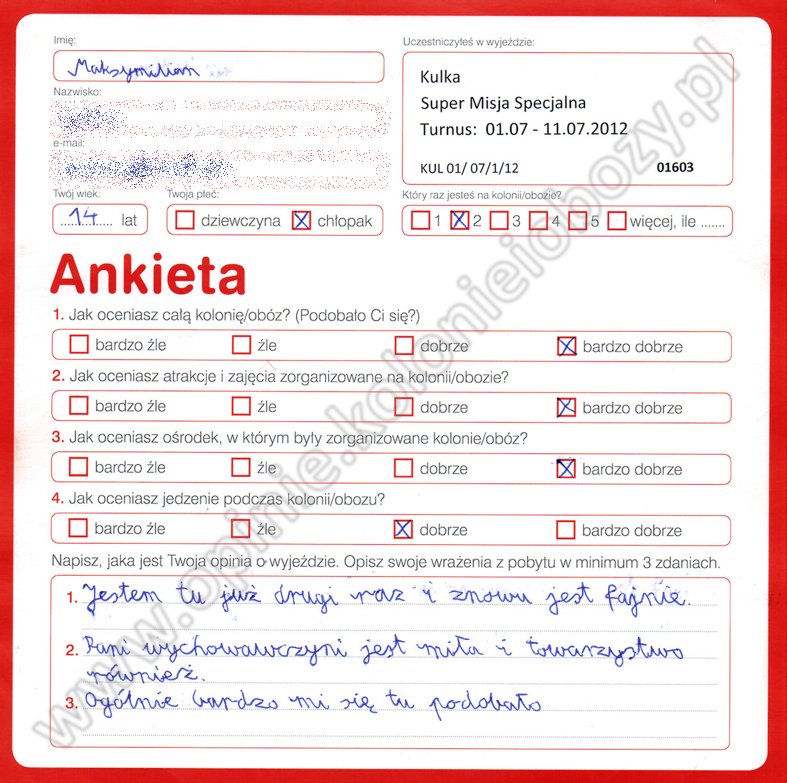 Imię:
Maksymilian
Nazwisko:
e-mail:
Twój wiek:
14 lat
Twoja płeć:
dziewczyna chłopak
Uczestniczyłeś w wyjeździe:
Kulka
Super Misja Specjalna
Turnus: 01.07 - 11.07.2012
KUL 01/ 07/1/12 01603
Który raz jesteś na kolonii/obozie?
1 2 3 4 5 więcej, ile .......
Ankieta
1. Jak oceniasz całą kolonię/obóz? (Podobało Ci się?)
bardzo źle źle dobrze bardzo dobrze
2. Jak oceniasz atrakcje i zajęcia zorganizowane na kolonii/obozie?
bardzo źle źle dobrze bardzo dobrze
3. Jak oceniasz ośrodek, w którym były zorganizowane kolonie/obóz?
bardzo źle źle dobrze bardzo dobrze
4. Jak oceniasz jedzenie podczas kolonii/obozu?
bardzo źle źle dobrze bardzo dobrze
Napisz, jaka jest Twoja opinia o wyjeździe. Opisz swoje wrażenia z pobytu w minimum 3 zdaniach.
1. Jestem tu już drugi raz i znowu jest fajnie.
2. Pani wychowawczyni jest miła i towarzystwo
również.
3. Ogólnie bardzo mi się tu podobało
www.opinie.kolonieiobozy.pl